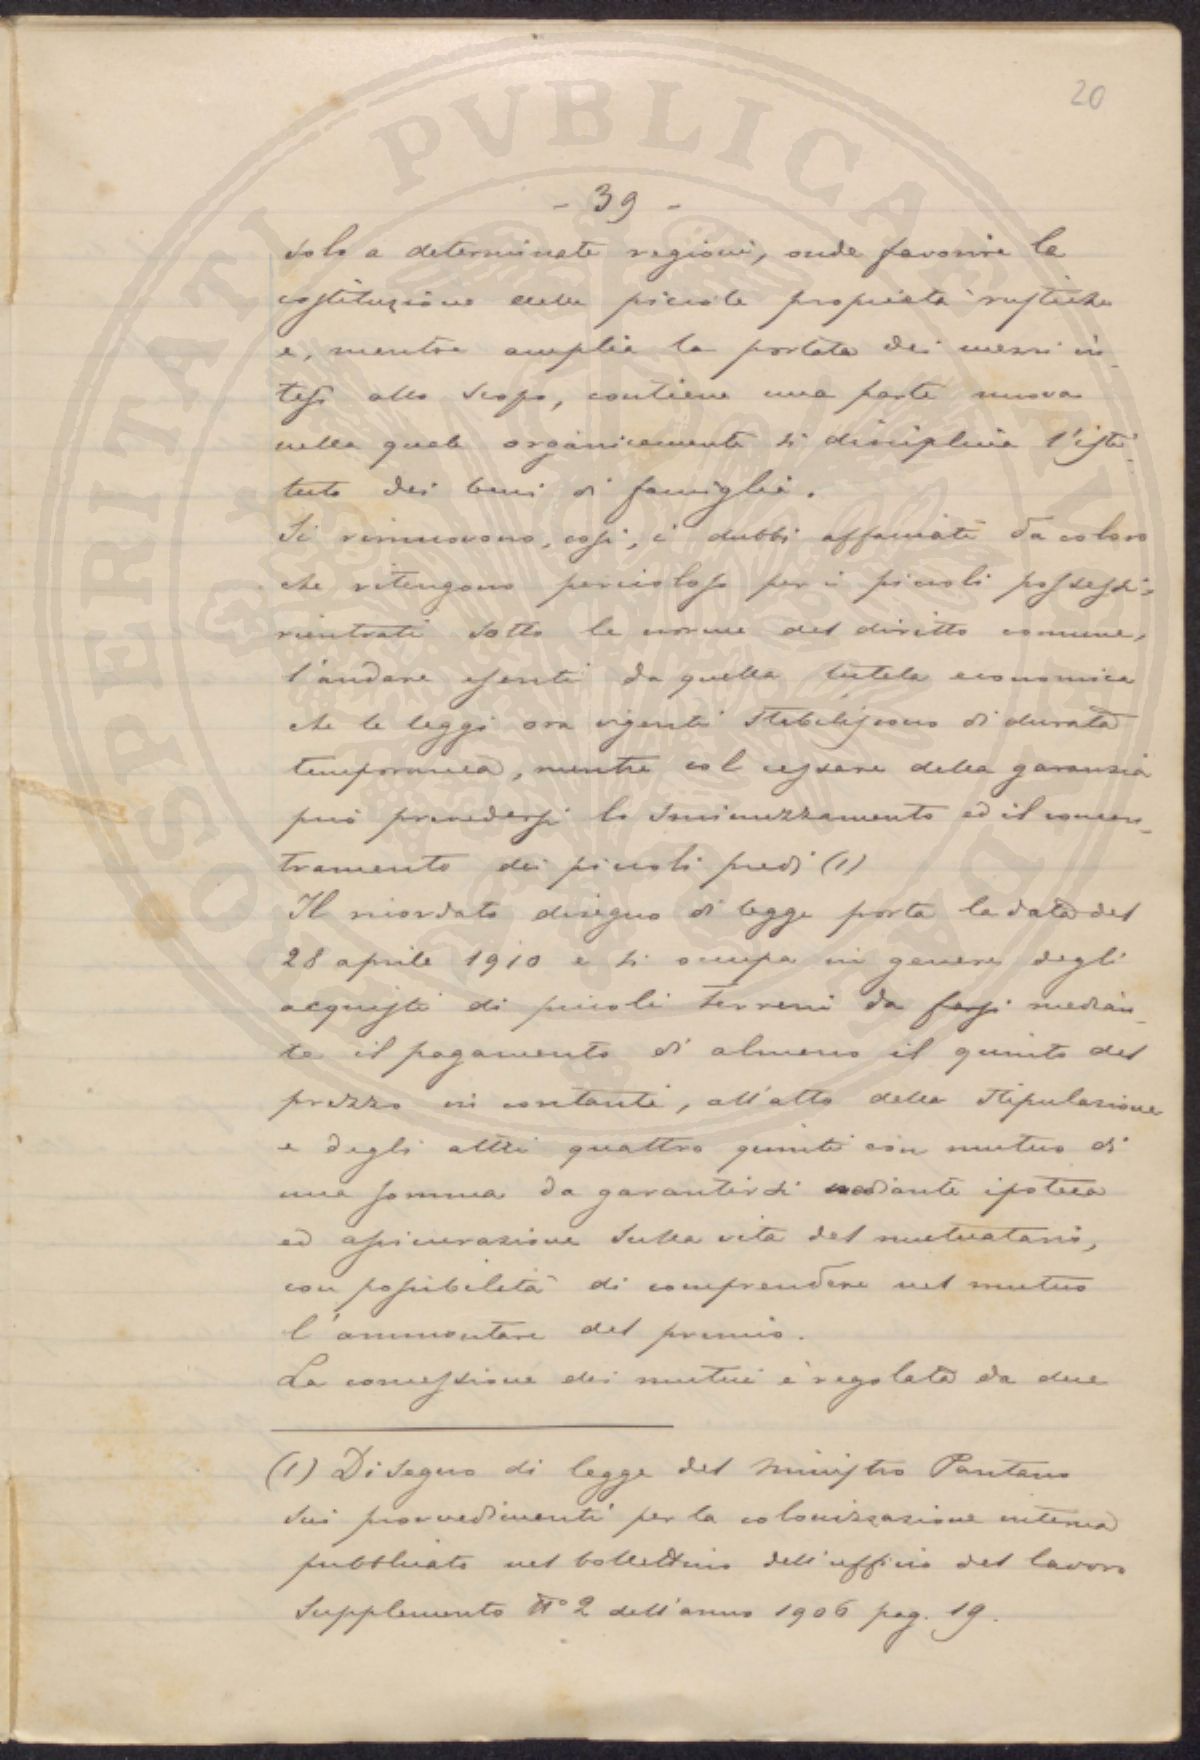 20
- 39 -
solo a determinate regioni, onde favorire la
costituzione delle piccole proprietà rustiche
e, mentre amplia la portata dei mezzi in-
tesi allo scopo, contiene una parte nuova
nella quale organicamente si disciplina l'isti-
tuto dei beni di famiglia.
Si rimuovono, così, i dubbi affacciati da coloro
che ritengono pericoloso per i piccoli possessi,
rientrati sotto le norme del diritto comune,
l'andare esenti da quella tutela economica
che le leggi ora vigenti stabiliscono di durata
temporanea, mentre col cessare della garanzia
può prevedersi lo sminuzzamento ed il concen-
tramento dei piccoli predi (1)
Il ricordato disegno di legge porta la data del
28 aprile 1910 e si occupa in genere degli
acquisti di piccoli terreni da farsi median-
te il pagamento di almeno il quinto del
prezzo in contanti, all'atto della stipulazione
e degli altri quattro quinti con mutuo di
una somma da garantirsi mediante ipoteca
ed assicurazione sulla vita del mutuatario,
con possibilità di comprendere nel mutuo
l'ammontare del premio.
La concessione dei mutui è regolata da due
(1) Disegno di legge del Ministro Pantano
sui provvedimenti per la colonizzazione interna
pubblicato nel bollettino dell'ufficio del lavoro
Supplemento N° 2 dell'anno 1906 pag. 19.